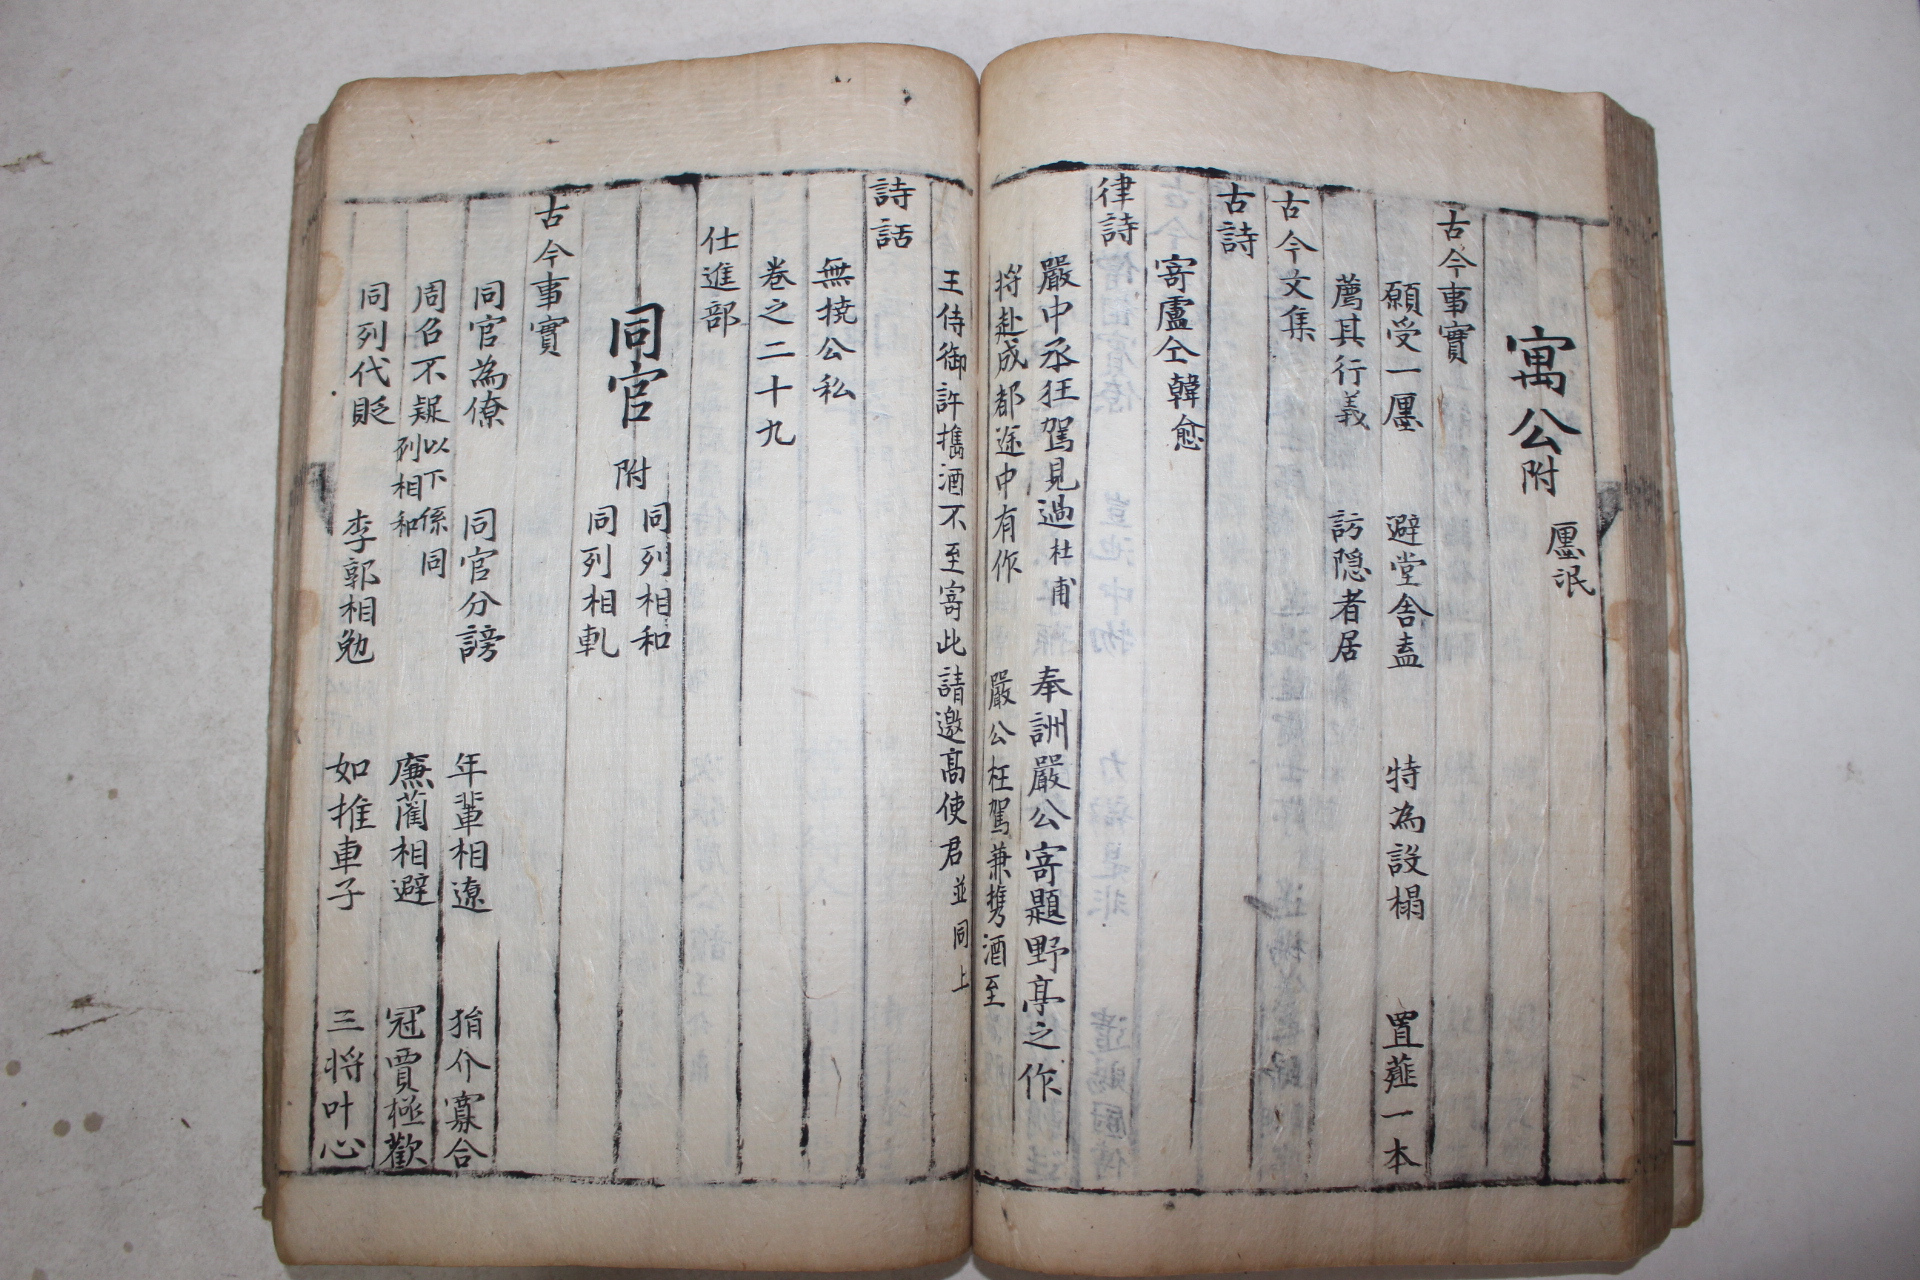 寓公附 㕓氓
古今事實
願受一㕓 避堂舍盖 特為設榻 置薤一本
薦其行義 訪隠者居
古今文集
古詩
寄盧仝韓愈
律詩
嚴中丞狂駕見過杜甫 奉詶嚴公寄題野亭之作
将赴成都途中有作 嚴公枉駕兼携酒至
王侍御許攜酒不至寄此請邀髙使君並同上
詩話
無撓公私
巻之二十九
仕進部
同官 附 同列相和 同列相軋
古今事實
同官為僚 同官分謗 年輩相遼 狷介寡合
周召不疑以下係同列相和 廉藺相避 冦賈極歡
同列代貶 李郭相勉 如推車子 三将叶心